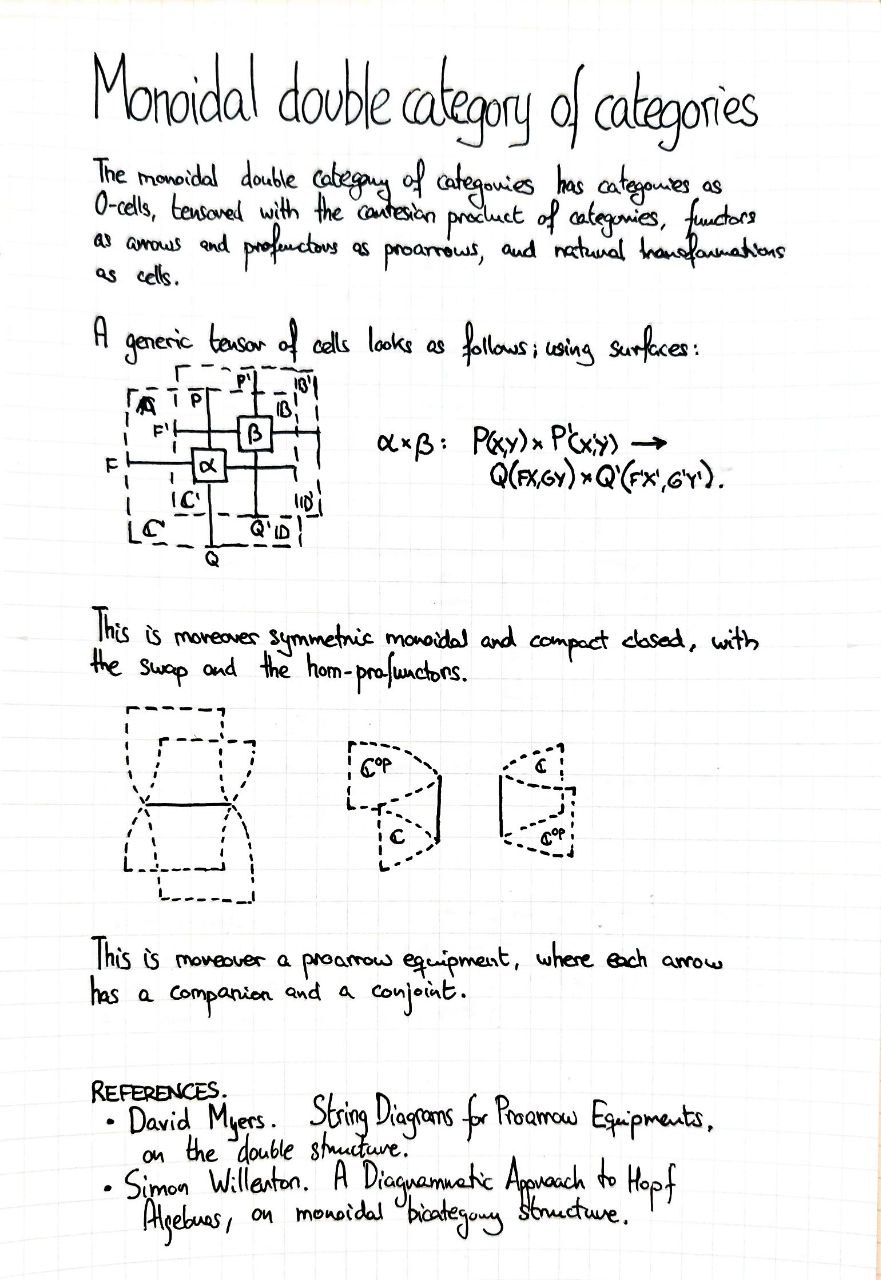 Monoidal double category of categories
The monoidal double category of categories has categories as
0-cells, tensored with the cartesian product of categories, functors
as arrows and profunctors as proarrows, and natural transformations
as cells.
A generic tensor of cells looks as follows; using surfaces:
P' 𝔹'
𝔸 P 𝔹
F' β
F α
ℂ' 𝔻'
ℂ Q' 𝔻
Q
α×β: P(X,Y) × P'(X',Y') →
Q(FX,GY) × Q'(F'X',G'Y').
This is moreover symmetric monoidal and compact closed, with
the swap and the hom-profunctors.
ℂᵒᵖ ℂ
ℂ ℂᵒᵖ
This is moreover a proarrow equipment, where each arrow
has a companion and a conjoint.
REFERENCES.
• David Myers. String Diagrams for Proarrow Equipments,
on the double structure.
• Simon Willerton. A Diagrammatic Approach to Hopf
Algebras, on monoidal bicategory structure.